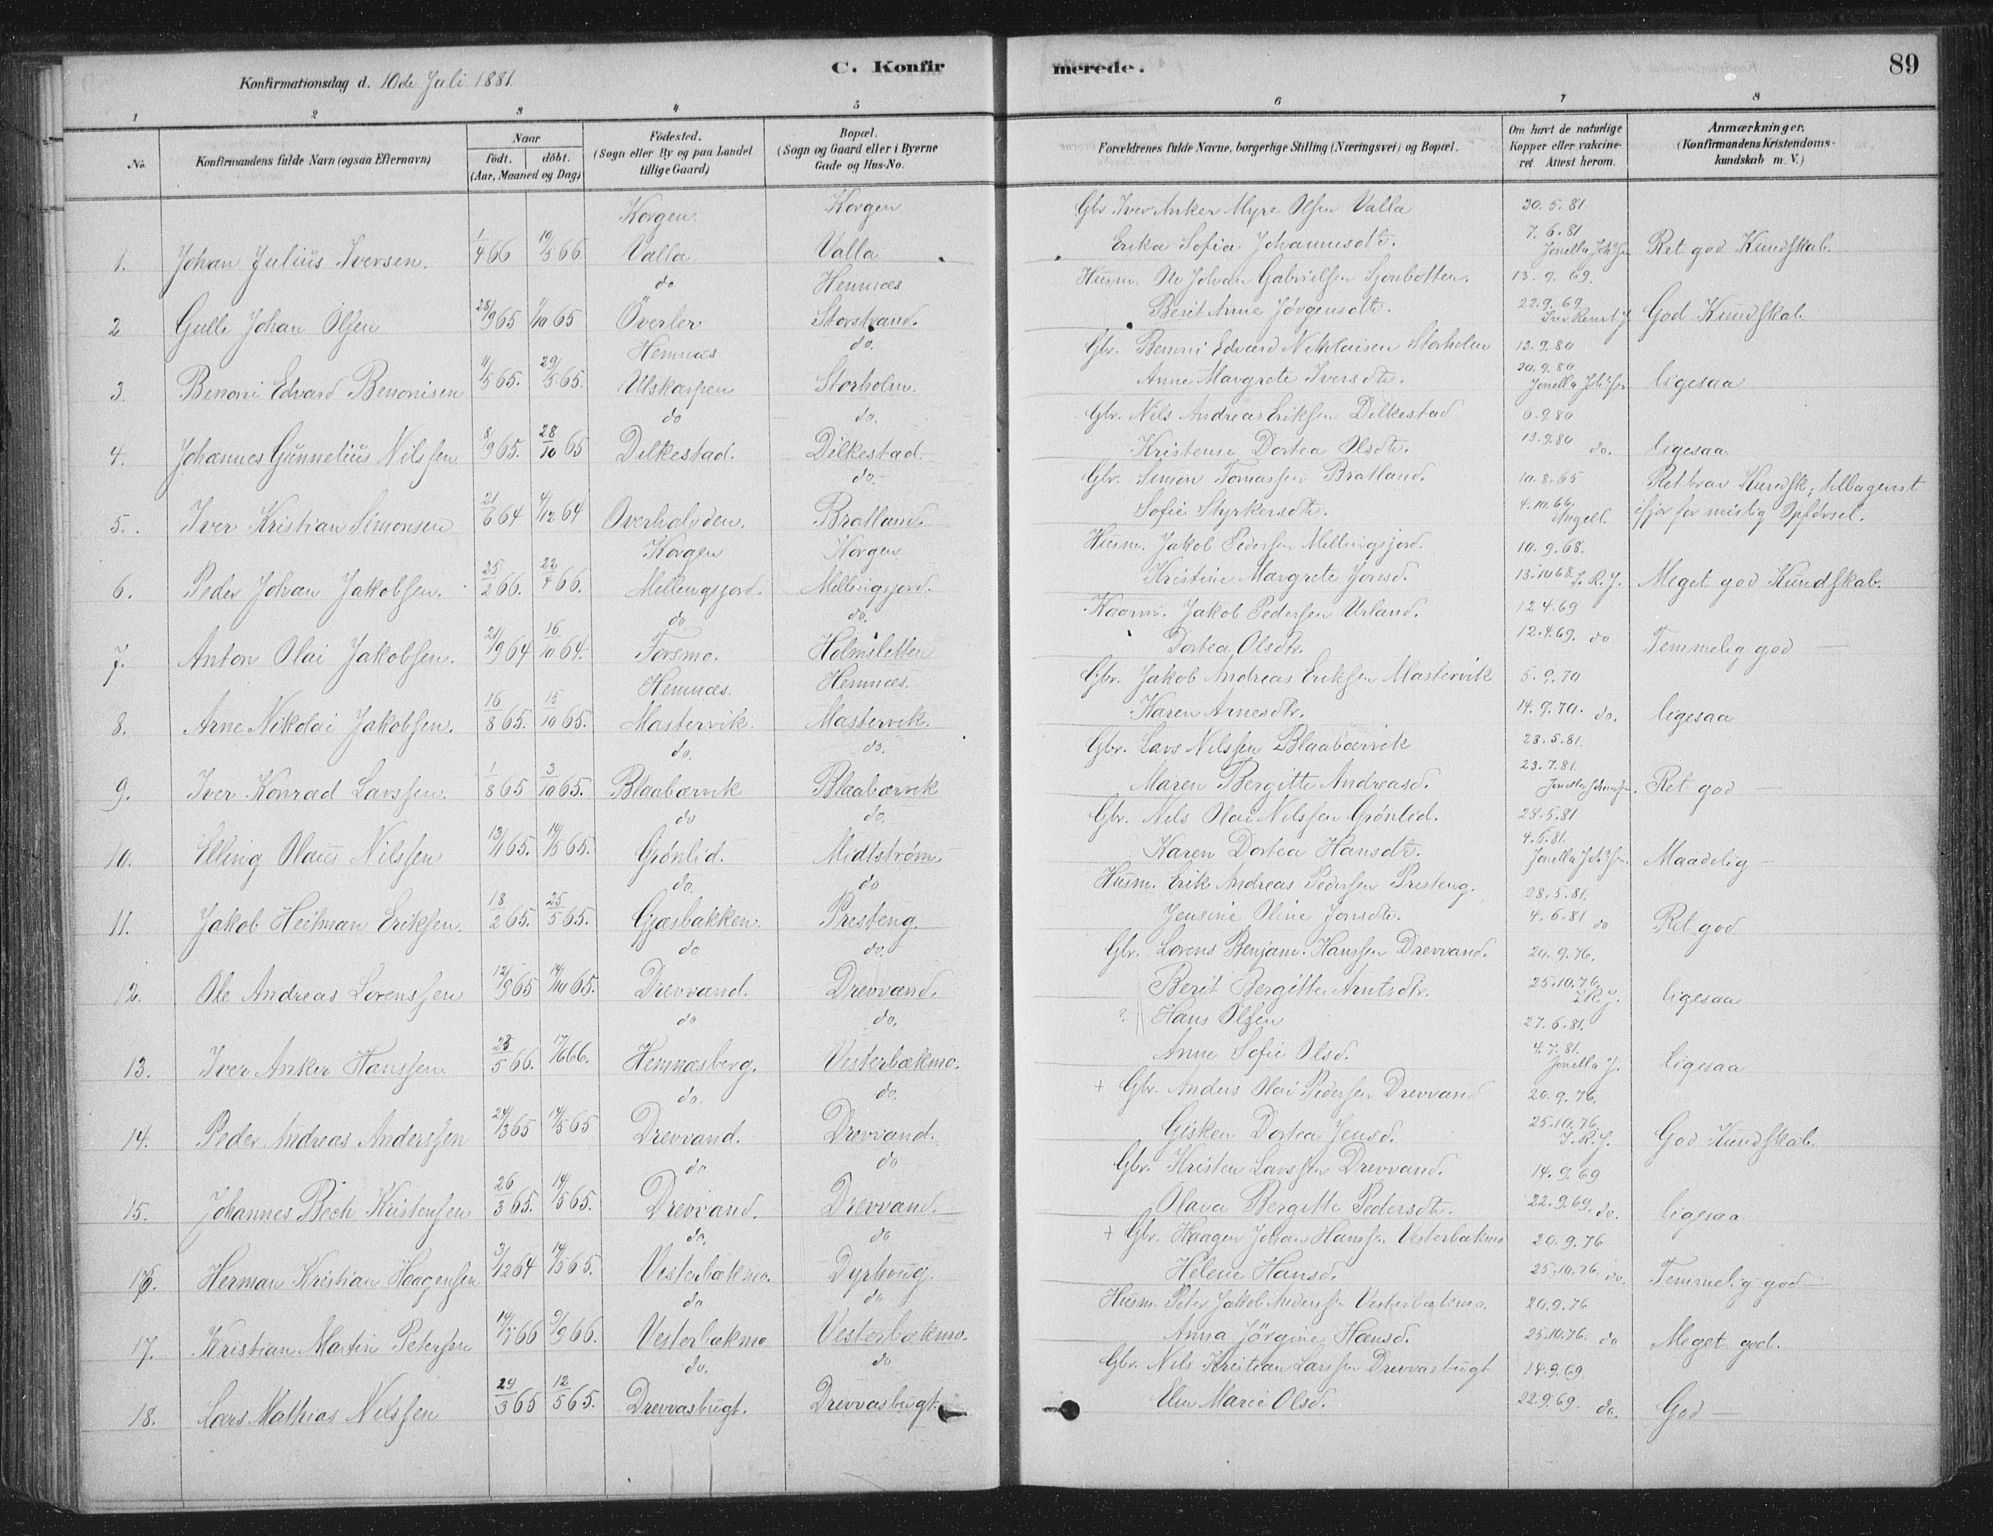 Konfirmationsdag d. 10de Juli 1881.
C. Konfirmerede.
89
1 2 3 4 5 6 7 8
No.
Konfirmandens fulde Navn (ogsaa Efternavn)
Naar
födt. döbt.
(Aar, Maaned og Dag)
Födested.
(Sogn eller By og paa Landet tillige Gaard)
Bopæl.
(Sogn og Gaard eller i Byerne Gade og Hus-No.
Forældrenes fulde Navne, borgerlige Stilling (Næringsvei) og Bopæl.
Om havt de naturlige Kopper eller vakcineret. Attest herom.
Anmærkninger.
(Konfirmandens Kristendomskundskab m. V.)
Korgen Korgen Gbr. Iver Anker Myre Olsen Valla 30.5.81
1. Johan Julius Iversen. 1/4 66 19/5 66 Valla Valla Erika Sofia Johannesdtr. 7.6.81 Ret god Kundskab.
do Hemnæs Husm. Ole Johan Gabrielsen Sjonbotten. 13.9.69.
2 Gulle Johan Olsen 28/9 65 1/10 65 Överler Storstrand. Berit Anne Jørgensdtr. 22.9.69 God Kundskab
Hemnæs do. Gbr. Benoni Edvard Nikolaisen Storholm 12.9.80
3. Benoni Edvard Benonisen 11/5 65. 29/5 65. Ulskarpen Storholm. Anne Margrete Iversdtr. 20.9.80 ligesaa
do do. Gbr. Nils Andreas Eriksen Dilkestad 6.9.80
4. Johannes Gunnelius Nilssen 8/9 65. 28/10 65 Dilkestad. Dilkestad. Kristense Dortea Olsdtr. 13.9.80 do. ligesaa
do. Gbr. Simon Tomassen Bratland. 10.8.65 Ret brav Kundsk., tilbagevist
5. Iver Kristian Simonsen 21/6 64 4/12 64 Overhalvden. Bratland. Sofie Styrkersdtr. 4.10.66 Angell. ifjor for mislig Opførsel.
Korgen Korgen Husm. Jakob Pedersen Millingsjord. 10.9.68.
6. Peder Johan Jakobsen. 25/2 66. 22/4 66. Mellingsjord. Millingsjord. Kristine Margrete Jonsd. 13.10.68. I.R.J. Meget god Kundskab.
do do. Kaarm. Jakob Pedersen Urland. 12.4.69
7. Anton Olai Jakobsen. 21/9 64 16/10 64. Forsmo. Holmsletten Dortea Olsdtr. 12.4.69. do Temmelig god —
Hemnæs. Hemnæs. Gbr. Jakob Andreas Eriksen Mastervik 5.9.70
8. Arne Nikolai Jakobsen. 16/8 65. 15/10 65. Mastervik. Mastervik. Karen Arnesdtr. 14.9.70. do. ligesaa
do. do. Gbr. Lars Nilssen Blaabærvik 28.5.81.
9. Iver Konrad Larssen. 1/8 65 3/10 65. Blaabærvik Blaabærvik Maren Bergitte Andreasd. 23.7.81. Ret god —
do do. Gbr. Nils Olai Nilssen Grönlid. 28.5.81
10. Elling Olaus Nilssen 13/1 65. 14/5 65. Grønlid. Midtstrøm. Karen Dortea Hansdtr. 4.6.81. Maadelig —
do. do Husm. Erik Andreas Pedersen Presteng. 28.5.81.
11. Jakob Heitman Eriksen. 18/2 65. 25/5 65. Gjæsbakken. Presteng. Jensine Oline Jonsdtr. 4.6.81 do Ret god
do do. Gbr. Lorens Benjam. Hanssen Drevvand. 20.9.76.
12. Ole Andreas Lorenssen 12/9 65 14/10 65. Drevvand. Drevvand. Berit Bergitte Arntsdtr. 25.10.76. I.R.J. ligesaa
do do. ? Hans Olsen 27.6.81.
13. Iver Anker Hanssen. 28/5 66. 17/6 66. Hemnæsberg. Vesterbækmo. Anne Sofie Olsd. 4.7.81. Jonella J. ligesaa
do. do. + Gbr. Anders Olai Pedersen Drevvand 20.9.76.
14. Peder Andreas Anderssen 24/3 65 14/5 65 Drevvand. Drevvand. Gisken Dortea Jensd. 25.10.76. I.R.J. God Kundskab.
do do Gbr. Kristen Larssen Drevvand. 14.9.69
15. Johannes Bech Kristensen 26/3 65. 14/5 65. Drevvand. Drevvand. Olava Bergitte Pedersdtr. 22.9.69. do. ligesaa
do. do + Gbr. Haagen Johan Hanssen Vesterbækmo 20.9.76
16. Herman Kristian Haagensen 3/12 64 14/5 65. Vesterbækmo. Dyrhoug. Helene Hansd. 25.10.76. do. Temmelig god —
do do Husm. Peter Jakob Anderssen Vesterbækmo. 20.9.76
17. Kristian Martin Petersen 14/7 66 9/9 66. Vesterbækmo Vesterbækmo. Anna Jörgine Hansd. 25.10.76. do Meget god.
do. do Gbr. Nils Kristian Larssen Drevvasbugt 14.9.69.
18. Lars Mathias Nilssen 29/3 65 12/5 65. Drevvasbugt. Drevvasbugt. Elen Marie Olsd. 22.9.69. do. God —